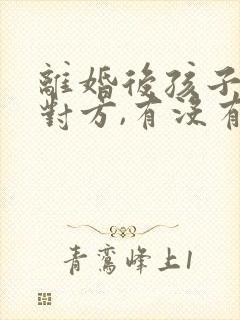 離婚後孩子
對方,有沒有
青鸞峰上1